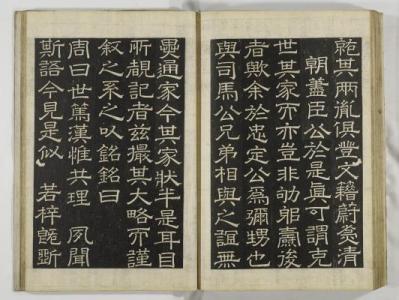 其兩胤俱豐文籍蔚爲清
朝藎臣公於是眞可謂克
世其家而亦豈非劬躬燾後
者歟余於忠定公爲彌甥也
與司馬公兄弟相與之誼無
異通家今其家狀半是耳目
所覩記者茲撮其大略而謹
叙之系之以銘銘曰
周曰世篤漢惟共理 夙聞
斯語今見是似 若梓旣斲